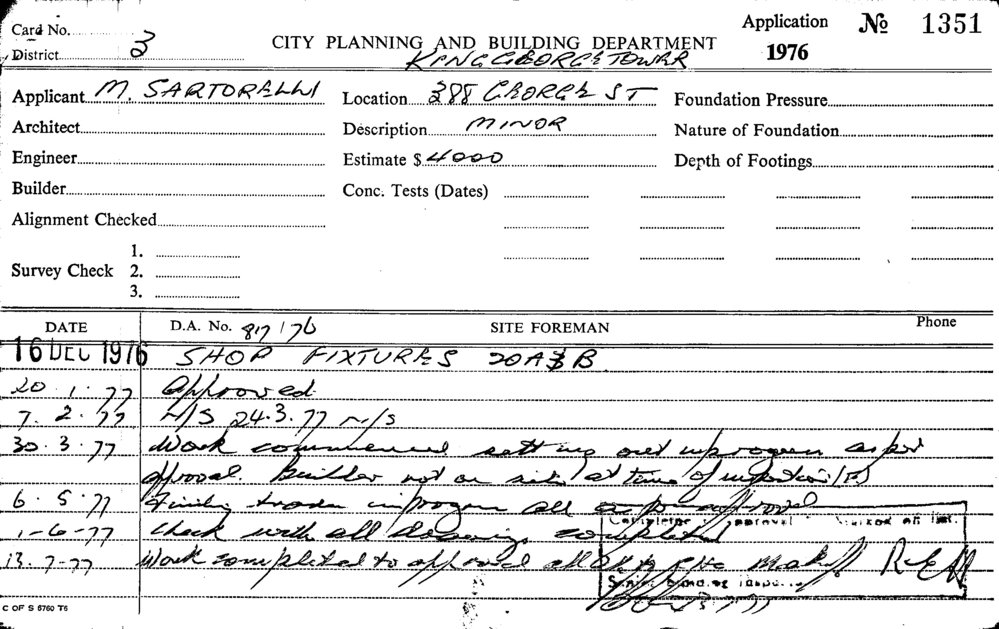 Card No.
District 3
CITY PLANNING AND BUILDING DEPARTMENT
Application № 1351
1976
KING GEORGE TOWER
Applicant M. SARTORELLI
Location 388 GEORGE ST
Foundation Pressure
Architect
Description MINOR
Nature of Foundation
Engineer
Estimate $ 4000
Depth of Footings
Builder
Conc. Tests (Dates)
Alignment Checked
Survey Check 1.
2.
3.
DATE
D.A. No. 817/76
SITE FOREMAN
Phone
16 DEC 1976 SHOP FIXTURES 20A & B
20.1.77 Approved
7.2.77 N/S 24.3.77 N/S
30.3.77 Work commenced setting out in progress as per
approval. Builder not on site at time of inspection
6.5.77 trades in progress all as per approval
1-6-77 Check with all completed
13.7-77 Work completed to approval all
13.7.77
C OF S 6760 T6